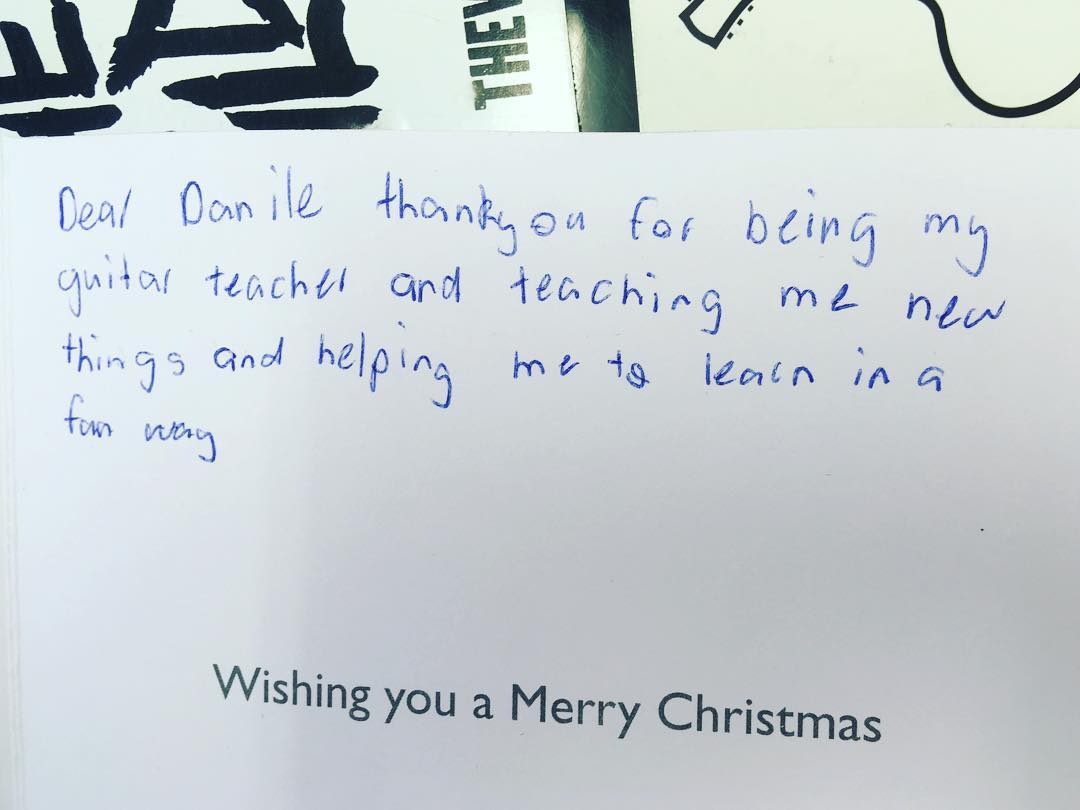 THEW
Dear Danile thankyou for being my
guitar teacher and teaching me new
things and helping me to learn in a
fun way
Wishing you a Merry Christmas